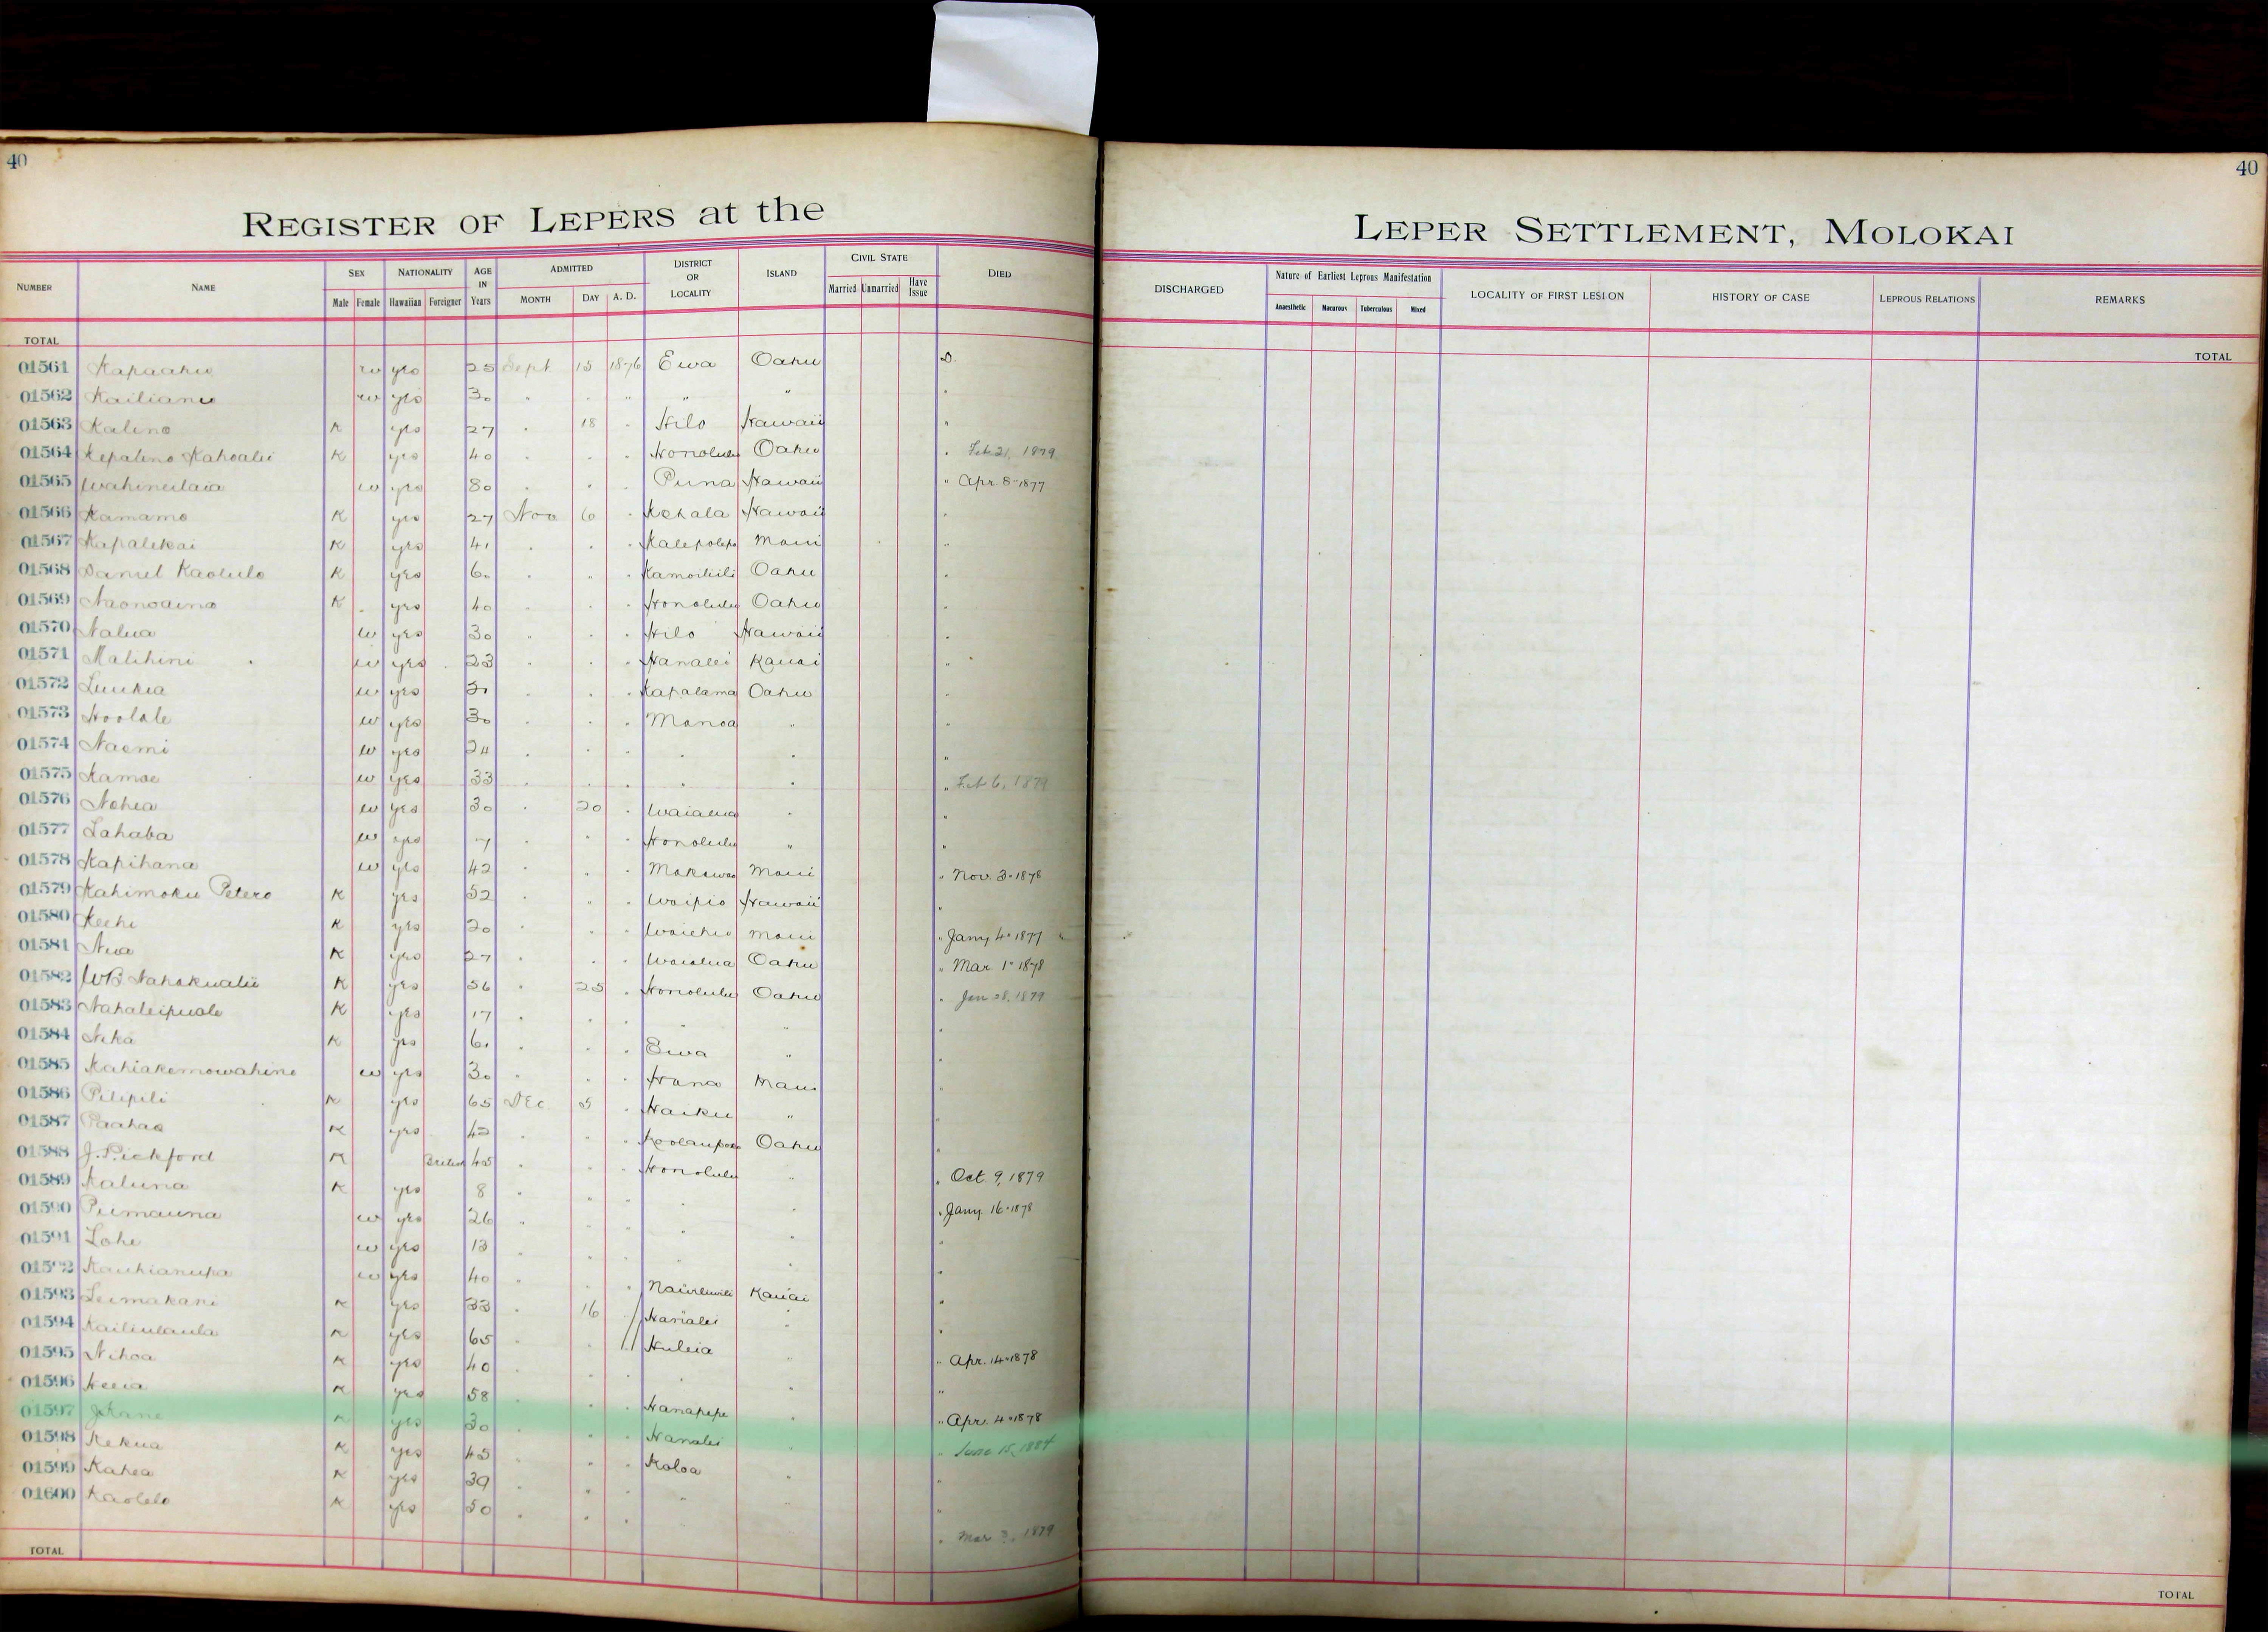 40
40
REGISTER OF LEPERS at the LEPER SETTLEMENT, MOLOKAI
NUMBER NAME SEX NATIONALITY AGE IN Years ADMITTED DISTRICT OR LOCALITY ISLAND CIVIL STATE DIED
Male Female Hawaiian Foreigner MONTH DAY A. D. Married Unmarried Have Issue
DISCHARGED Nature of Earliest Leprous Manifestation LOCALITY OF FIRST LESION HISTORY OF CASE LEPROUS RELATIONS REMARKS
Anaesthetic Macurous Tuberculous Mixed
TOTAL TOTAL
01561 Kapaahu w yes 25 Sept 15 1876 Ewa Oahu D.
01562 Kailianu w yes 30 " " " " " "
01563 Kalino K yes 27 " 18 " Hilo Hawaii "
01564 Kepalino Kahoalii K yes 40 " " " Honolulu Oahu " Feb 21, 1879
01565 Wahineilaia w yes 80 " " " Puna Hawaii " Apr. 8 1877
01566 Kamamo K yes 27 Nov 6 " Kohala Hawaii "
01567 Kapalekai K yes 41 " " " Kalepolepo Maui "
01568 Daniel Kaolulo K yes 60 " " " Kamoiliili Oahu "
01569 Naonoaina K yes 40 " " " Honolulu Oahu "
01570 Nalua w yes 30 " " " Hilo Hawaii "
01571 Malihini w yes 23 " " " Hanalei Kauai "
01572 Luukia w yes " " " Kapalama Oahu "
01573 Hoolale w yes 30 " " " Manoa " "
01574 Naomi w yes 24 " " " " " "
01575 Kamae w yes 33 " " " " " " Feb 6, 1879
01576 Nohea w yes 30 " 20 " Waialua " "
01577 Lahaba w yes 7 " " " Honolulu " "
01578 Kapihana w yes 42 " " " Makawao Maui " Nov. 3 1878
01579 Kahimoku Petero K yes 52 " " " Waipio Hawaii "
01580 Keehi K yes 20 " " " Waiehu Maui " Jany 4 1877 "
01581 Niua K yes 27 " " " Waialua Oahu " Mar. 1 1878
01582 WB Nahokualii K yes 56 " 25 " Honolulu Oahu " Jan 28, 1879
01583 Nahaleipuale K yes 17 " " " " " "
01584 Nika K yes 61 " " " Ewa " "
01585 Kahiakemowahine w yes 30 " " " Hana Maui "
01586 Pilipili K yes 65 Dec 5 " Haiku " "
01587 Paahao K yes 42 " " " Koolaupoko Oahu "
01588 J. Pickford K British 45 " " " Honolulu " " Oct. 9, 1879
01589 Kaluna K yes 8 " " " " " " Jany 16 1878
01590 Puimauna w yes 26 " " " " " "
01591 Lohe w yes 13 " " " " " "
01592 Kauhianupa w yes 40 " " " Nawiliwili Kauai "
01593 Leimakani K yes 33 " 16 " Hanalei " "
01594 Kailiulaula K yes 65 " " " Huleia " " Apr. 14 1878
01595 Nihoa K yes 40 " " " " " "
01596 Heeia K yes 58 " " " Hanapepe " " Apr. 4 1878
01597 J Kane K yes 30 " " " Hanalei " " June 15, 1884
01598 Kekua K yes 45 " " " Koloa " "
01599 Kahea K yes 39 " " " " " "
01600 Kaolelo K yes 50 " " " " Mar 3, 1879
TOTAL TOTAL